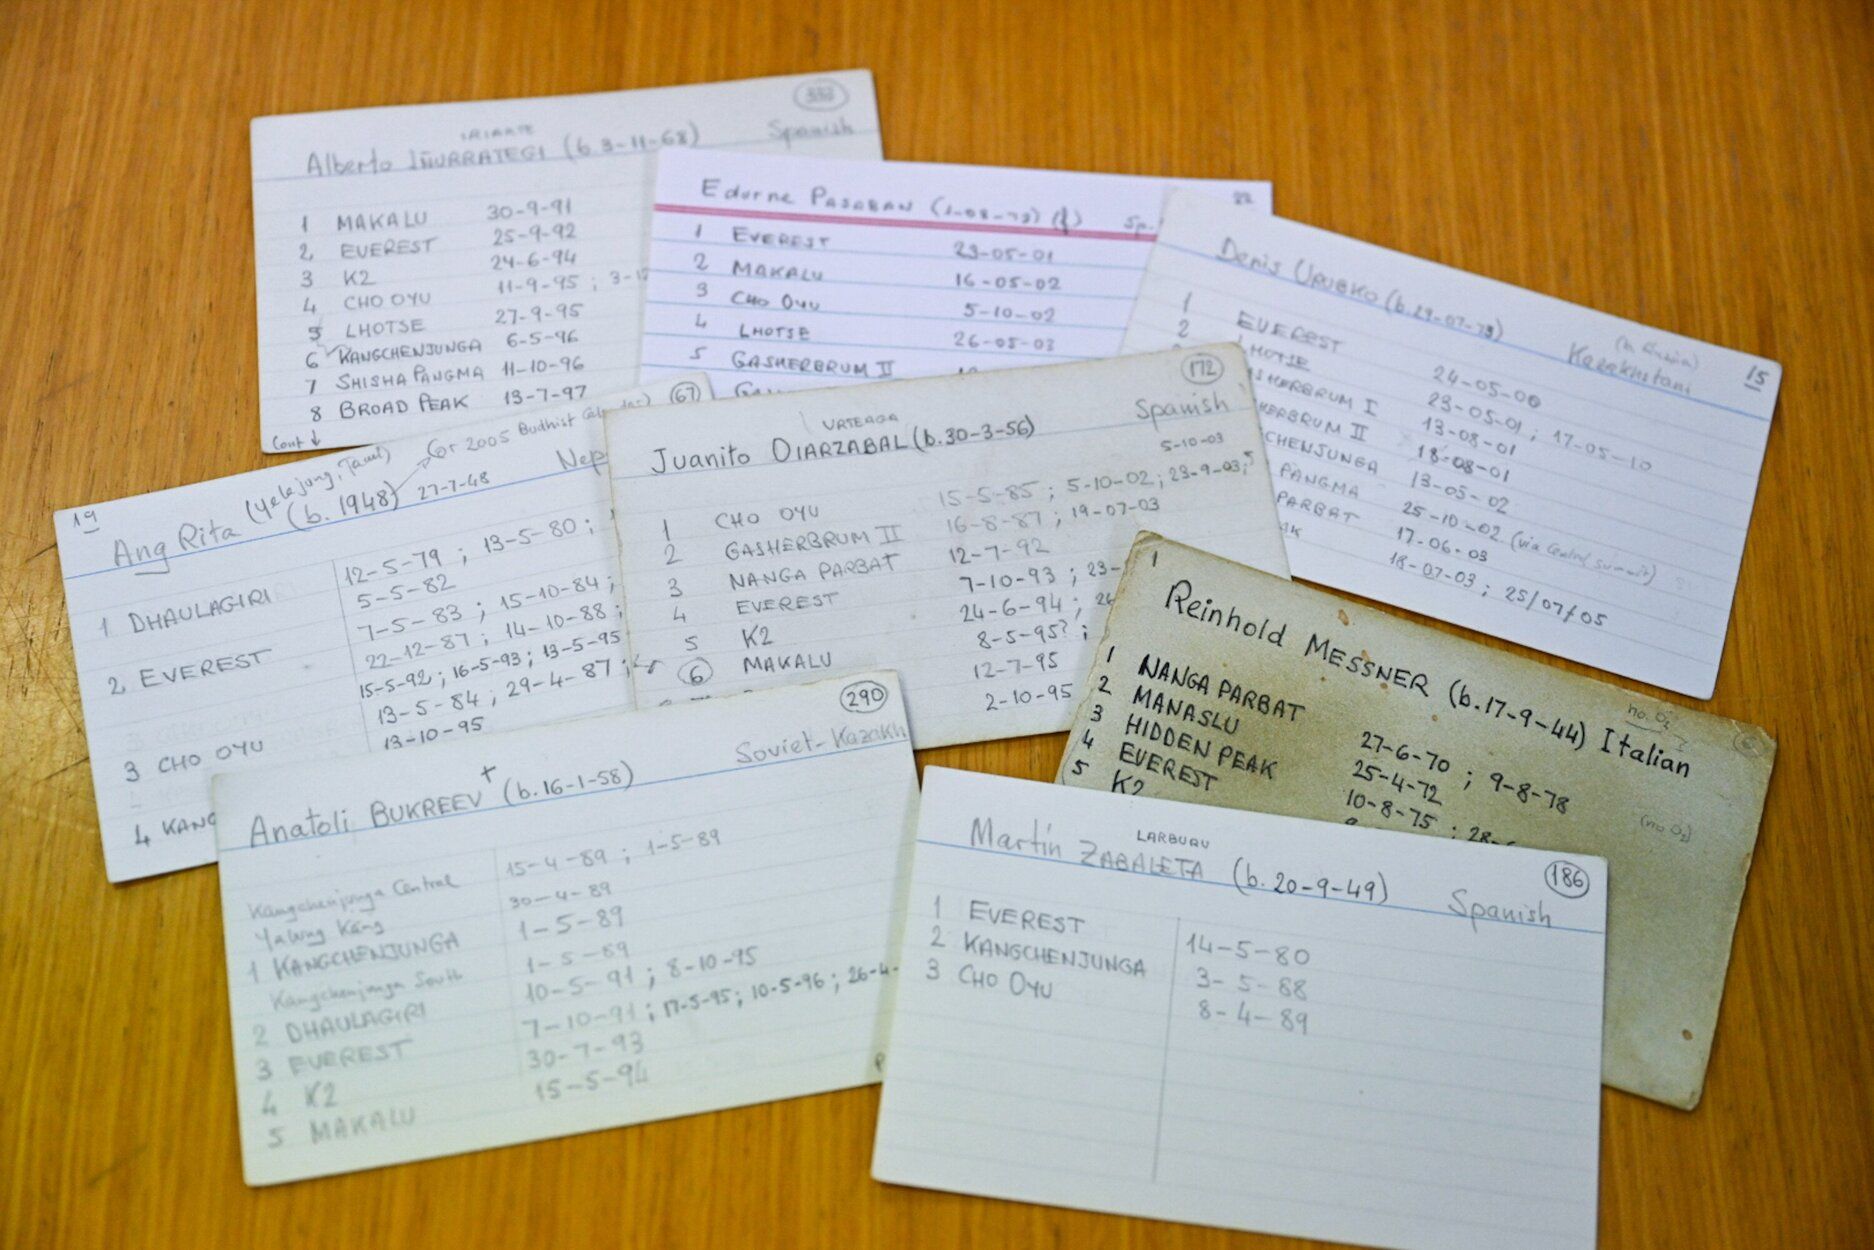 IRIARTE
Alberto IÑURRATEGI (b. 3-11-68) Spanish
1 MAKALU 30-9-91
2 EVEREST 25-9-92
3 K2 24-6-94
4 CHO OYU 11-9-95 ;
5 LHOTSE 27-9-95
6 KANGCHENJUNGA 6-5-96
7 SHISHA PANGMA 11-10-96
8 BROAD PEAK 13-7-97
(Cont ↓
22
Edurne PASABAN (1-08-73) (f) Sp.
1 EVEREST 23-05-01
2 MAKALU 16-05-02
3 CHO OYU 5-10-02
4 LHOTSE 26-05-03
5 GASHERBRUM II
15
Denis URUBKO (b. 29-07-73) (b. Russia)
Kazakhstani
1 EVEREST 24-05-00
2 LHOTSE 23-05-01 ; 17-05-10
GASHERBRUM I 13-08-01
BRUM II 18-08-01
CHENJUNGA 13-05-02
PANGMA 25-10-02 (via Central summit)
PARBAT 17-06-03
18-07-03 ; 25/07/05
19 67
Ang Rita (Yelajung, Taml) (b. 1948) (or 2005 Budhist Calendar) 27-7-48 Nep
1 DHAULAGIRI 12-5-79 ; 13-5-80 ;
5-5-82
2 EVEREST 7-5-83 ; 15-10-84 ;
22-12-87 ; 14-10-88 ;
15-5-92 ; 16-5-93 ; 13-5-95
3 CHO OYU 13-5-84 ; 29-4-87 ;
13-10-95
4 KANG
172
URTEAGA
Juanito OIARZABAL (b. 30-3-56) Spanish
5-10-03
1 CHO OYU 15-5-85 ; 5-10-02 ; 23-9-03 ;
2 GASHERBRUM II 16-8-87 ; 19-07-03
3 NANGA PARBAT 12-7-92
4 EVEREST 7-10-93 ; 23-
5 K2 24-6-94 ; 26
6 MAKALU 8-5-95? ;
12-7-95
2-10-95
1
Reinhold MESSNER (b. 17-9-44) Italian
no O2
1 NANGA PARBAT 27-6-70 ; 9-8-78
2 MANASLU 25-4-72
3 HIDDEN PEAK 10-8-75 ; 28-
(no O2)
4 EVEREST
5 K2
290
Anatoli BUKREEV + (b. 16-1-58) Soviet-Kazakh
Kangchenjunga Central 15-4-89 ; 1-5-89
Yalung Kang 30-4-89
1 KANGCHENJUNGA 1-5-89
Kangchenjunga South 1-5-89
2 DHAULAGIRI 10-5-91 ; 8-10-95
3 EVEREST 7-10-91 ; 17-5-95 ; 10-5-96 ; 26-4-
4 K2 30-7-93
5 MAKALU 15-5-94
186
LARBURU
Martín ZABALETA (b. 20-9-49) Spanish
1 EVEREST 14-5-80
2 KANGCHENJUNGA 3-5-88
3 CHO OYU 8-4-89